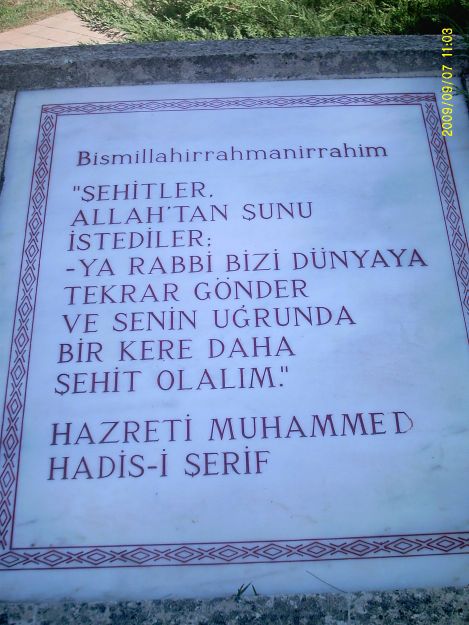 2009/09/07 11:03
Bismillahirrahmanirrahim
"ŞEHİTLER,
ALLAH'TAN ŞUNU
İSTEDİLER:
-YA RABBİ BİZİ DÜNYAYA
TEKRAR GÖNDER
VE SENİN UĞRUNDA
BİR KERE DAHA
ŞEHİT OLALIM."
HAZRETİ MUHAMMED
HADİS-İ ŞERİF